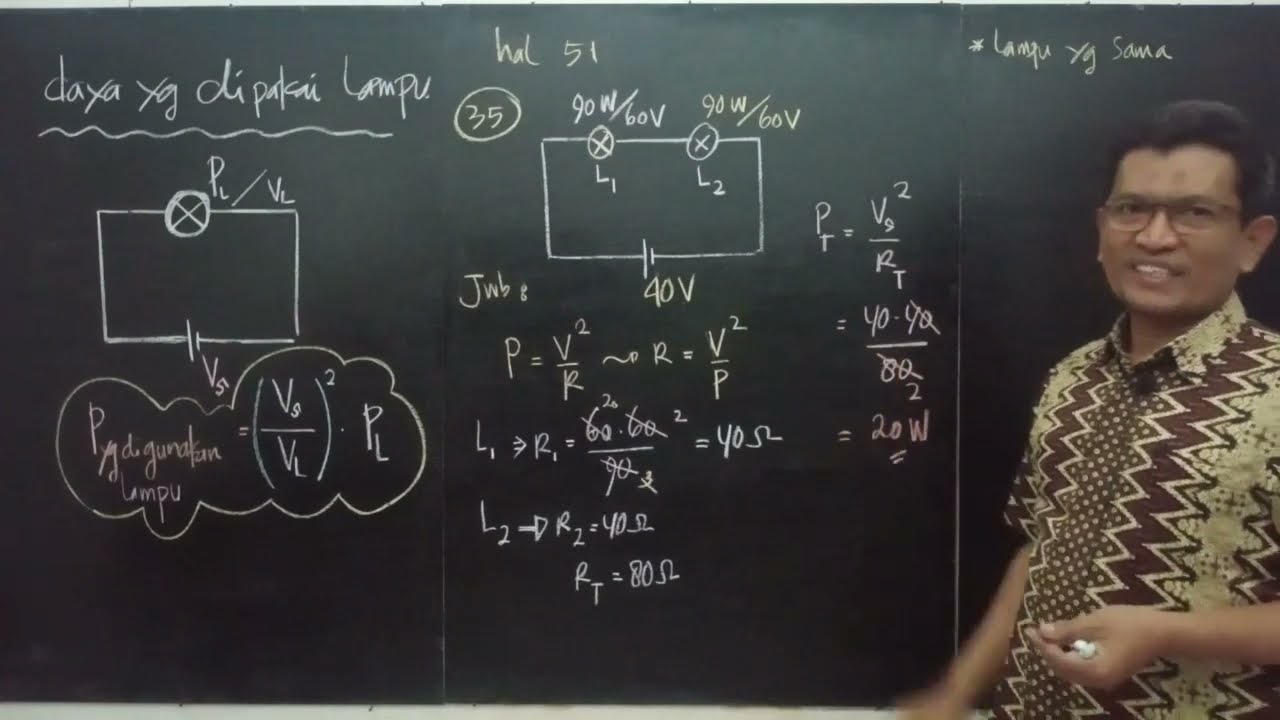 daya yg dipakai Lampu
P_L / V_L
V_s
P yg digunakan Lampu = (V_s / V_L)² . P_L
hal 51
35
90 W/60V 90 W/60V
L₁ L₂
40V
Jwb :
P = V²/R ~> R = V²/P
L₁ ⇒ R₁ = 60 . 60 / 90 = 40 Ω
20 2
3
L₂ ⇒ R₂ = 40 Ω
R_T = 80 Ω
P_T = V_s² / R_T
= 40 . 40 / 80
2
= 20 W
* Lampu yg Sama